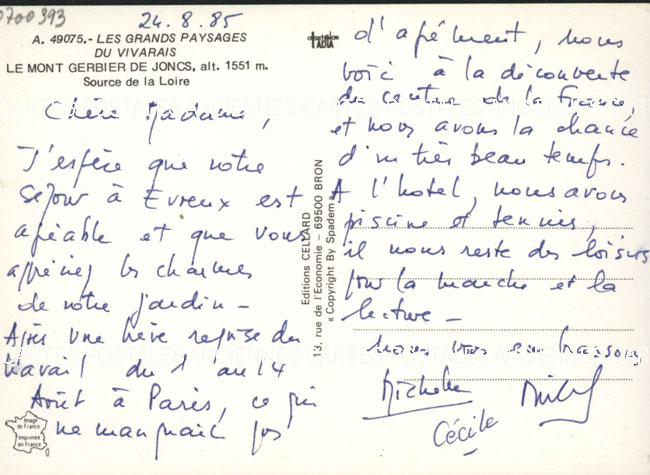 0700393
24.8.85
A. 49075.- LES GRANDS PAYSAGES
DU VIVARAIS
LE MONT GERBIER DE JONCS, alt. 1551 m.
Source de la Loire
Chère Madame,
J'espère que votre
séjour à Evreux est
agréable et que vous
appréciez les charmes
de votre jardin -
Après une brève reprise du
travail du 1 au 14
Août à Paris, ce qui
ne manquait pas
Image
de France
Imprimée
en France
Editions CELLARD
13, rue de l'Economie - 69500 BRON
« Copyright By Spadem »
d'agrément, nous
voici à la découverte
du centre de la France,
et nous avons la chance
d'un très beau temps.
A l'hôtel, nous avons
piscine et tennis,
il nous reste des loisirs
pour la marche et la
lecture -
nous vous embrassons
Michelle
Cécile
CARTES POSTALES ANCIENNES CARTES POSTALES ANCIENNES